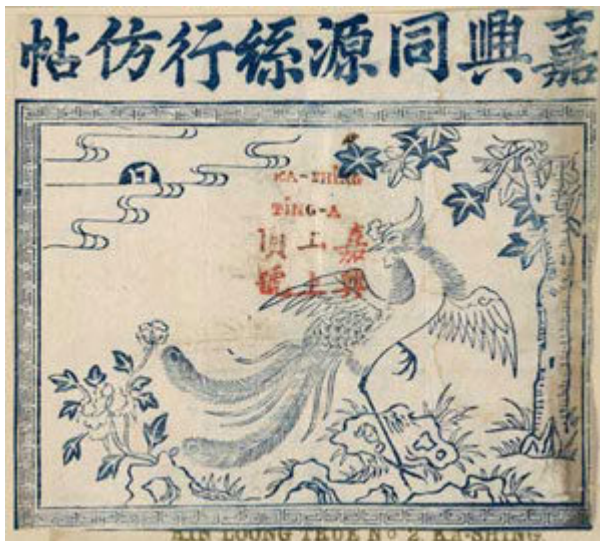 嘉興同源絲行仿帖
日
KA-SHING
TING-A
嘉興
上上
頂號
AIN LOONG TRUE Nº 2 KA-SHING